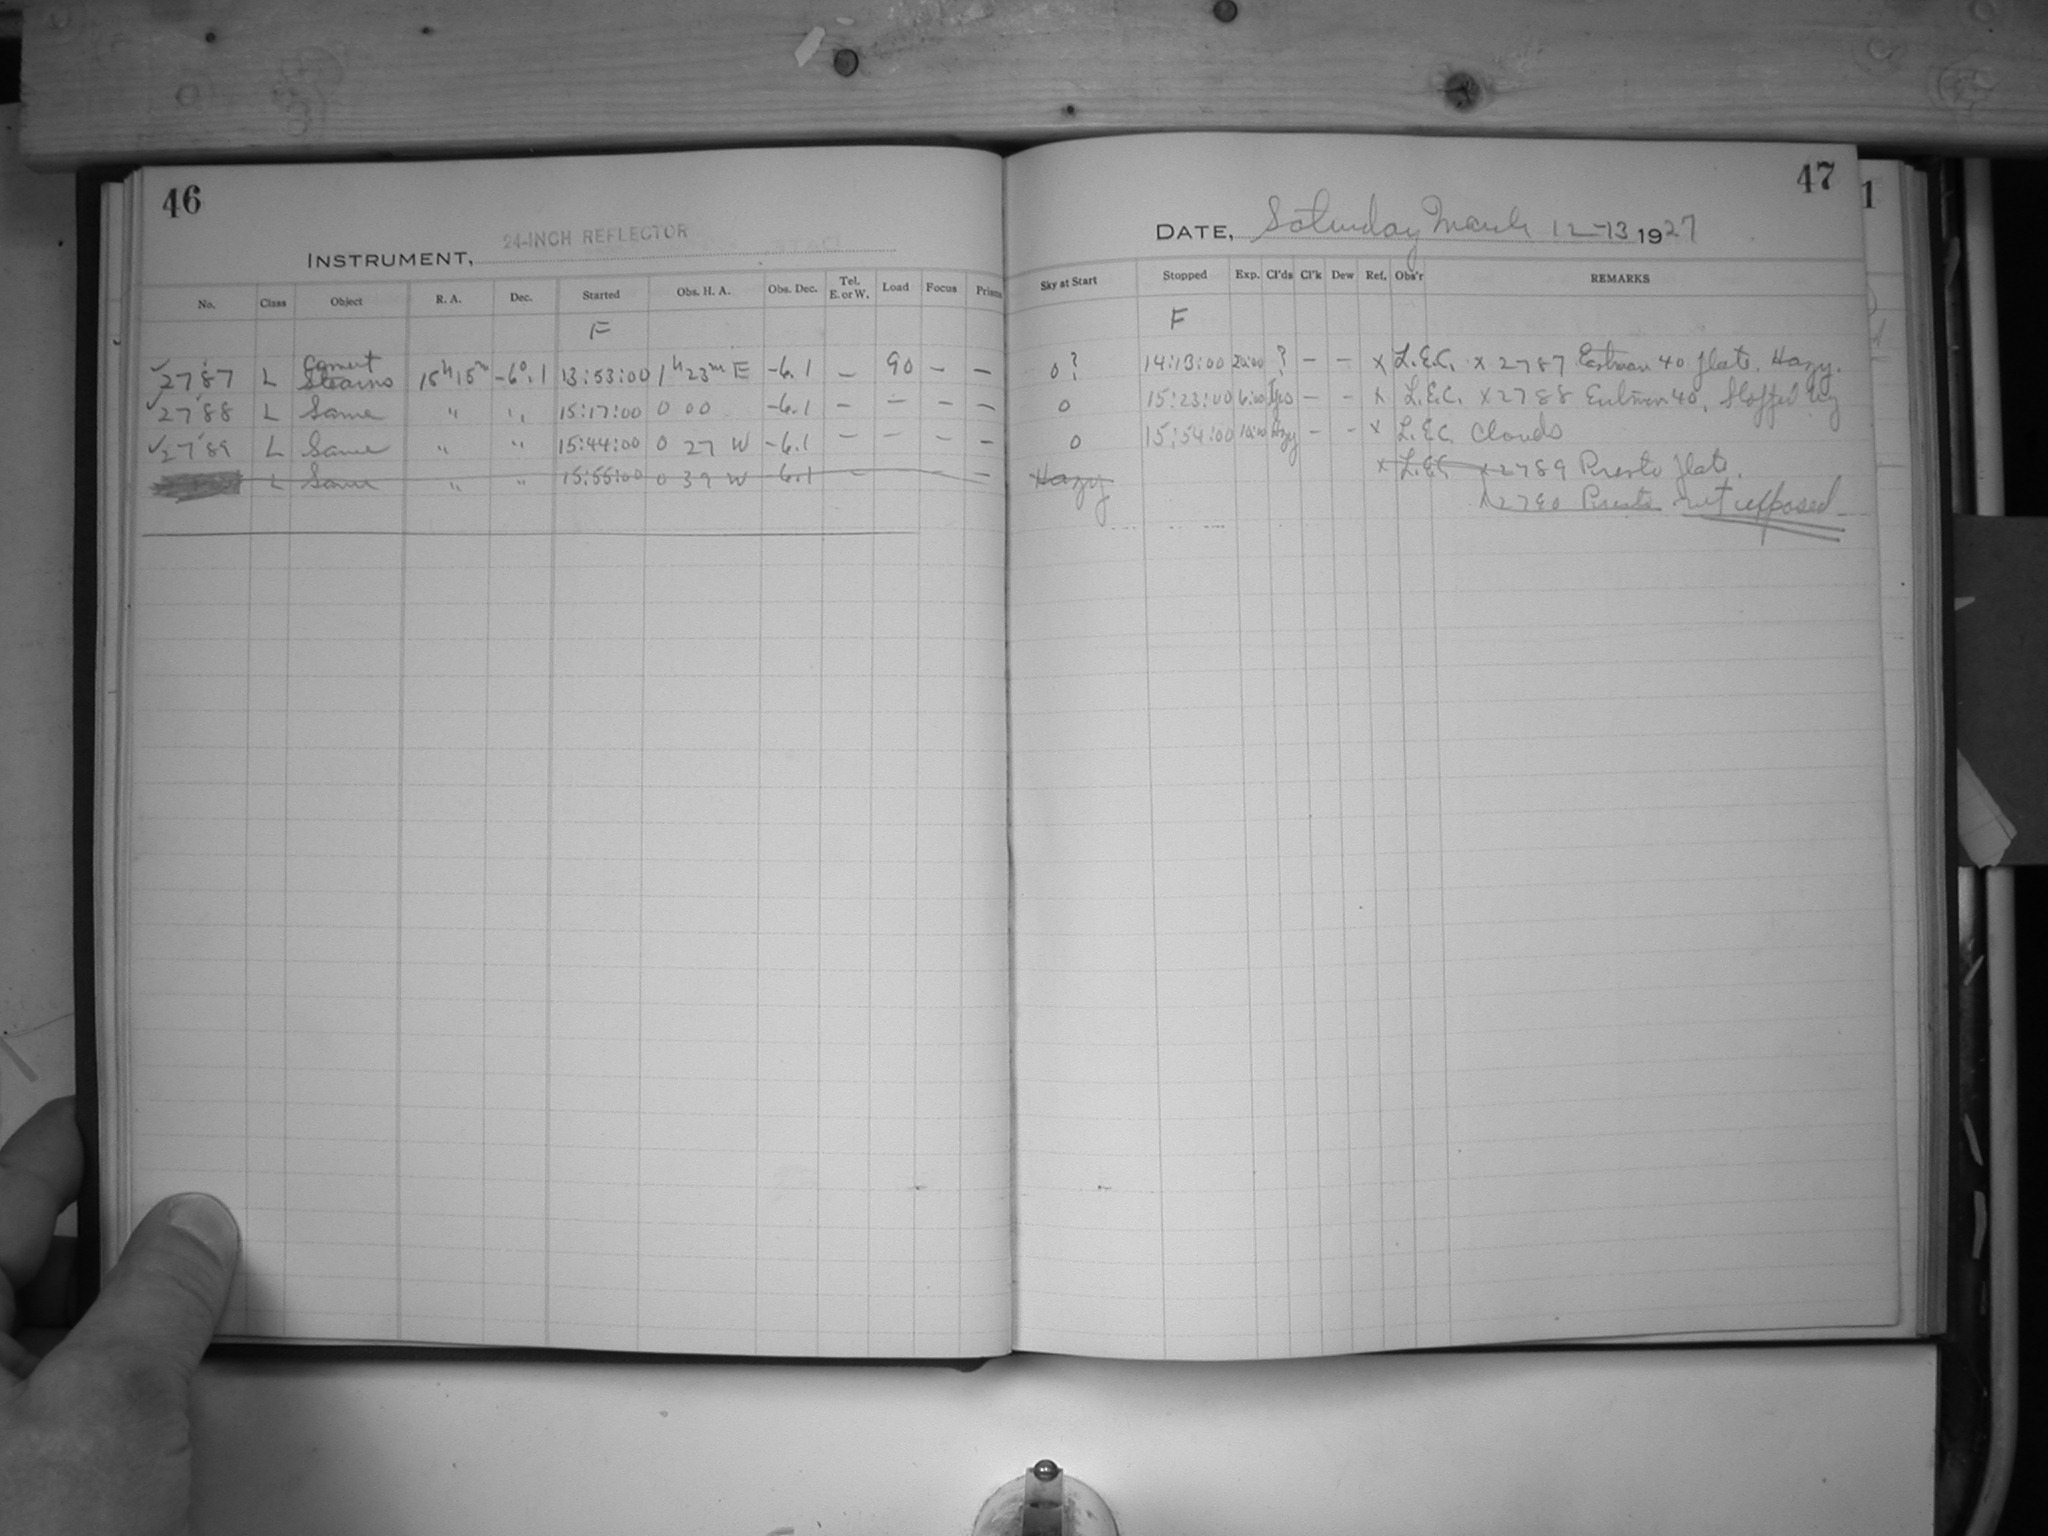 46
INSTRUMENT, 24-INCH REFLECTOR
No. Class Object R. A. Dec. Started Obs. H. A. Obs. Dec. Tel. E. or W. Load Focus Prism
F
✓2787 L Comet Stearns 15h15m -6°.1 13:53:00 1h23m E -6.1 — 90 — —
✓2788 L Same " " 15:17:00 0 00 -6.1 — — — —
✓2789 L Same " " 15:44:00 0 27 W -6.1 — — — —
L Same " " 15:55:00 0 39 W -6.1 — —
47
1
DATE, Saturday March 12-13 1927
Sky at Start Stopped Exp. Cl'ds Cl'k Dew Ref. Obs'r REMARKS
F
0? 14:13:00 20:00 ? — — x L.E.C. x 2787 Eastman 40 plate. Hazy.
0 15:23:00 6:00 Yes — — x L.E.C. x 2788 Eastman 40. Stopped by
0 15:54:00 10:00 Hazy — — x L.E.C. Clouds
Hazy x L.E.C. x 2789 Presto plate.
x 2790 Presto not exposed